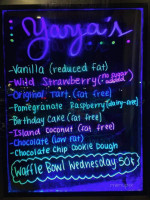 Yaya's
-Vanilla (reduced fat)
-Wild Strawberry (no sugar added)
-Original Tart (fat free)
-Pomegranate Raspberry (dairy-free)
-Birthday Cake (fat free)
-Island Coconut (fat free)
-Chocolate (low fat)
-Chocolate Chip Cookie Dough
Waffle Bowl Wednesday 50¢